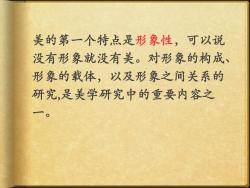 美的第一个特点是形象性，可以说
没有形象就没有美。对形象的构成、
形象的载体，以及形象之间关系的
研究,是美学研究中的重要内容之
一。